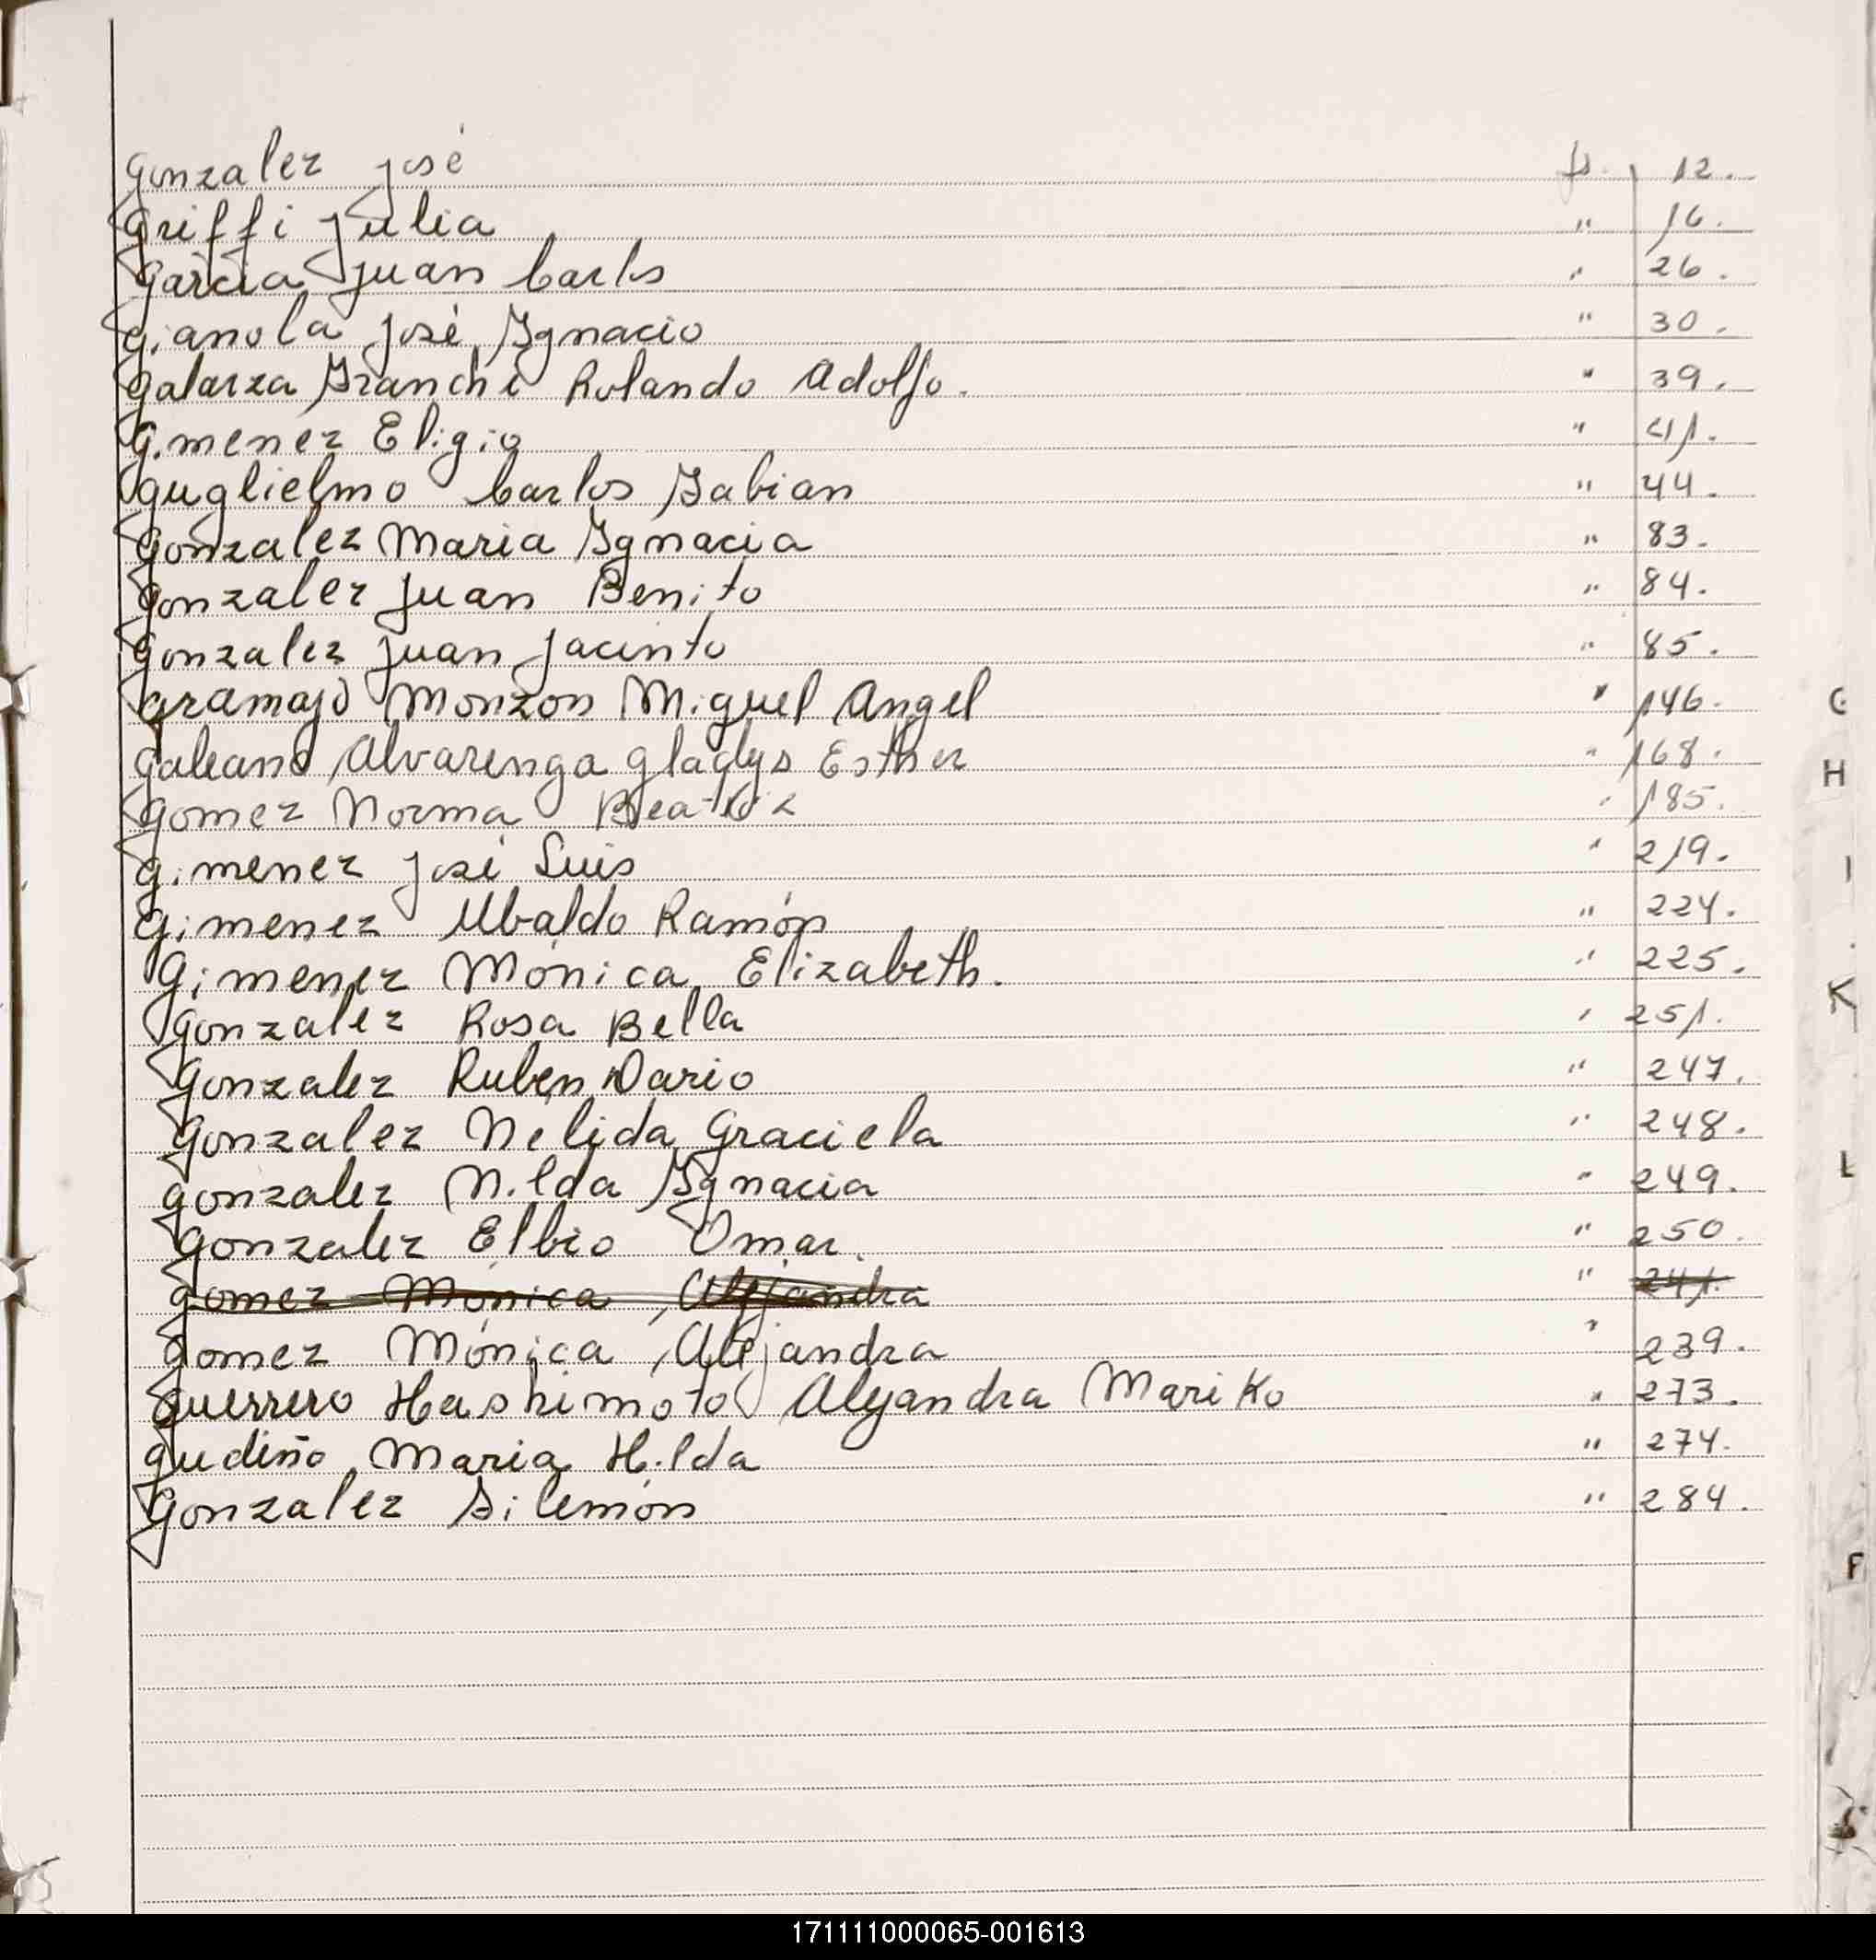 Gonzalez José fs. 12.
Griffi Julia " 16.
Garcia Juan Carlos " 26.
Gianola José Ignacio " 30.
Galarza Franchi Rolando Adolfo. " 39.
Gimenez Eligio " 41.
Guglielmo Carlos Fabian " 44.
Gonzalez Maria Ignacia " 83.
Gonzalez Juan Benito " 84.
Gonzalez Juan Jacinto " 85.
Gramajo Monzon Miguel Angel " 146.
Galeano Alvarenga Gladys Esther " 168.
Gomez Norma Beatriz " 185.
Gimenez José Luis " 219.
Gimenez Ubaldo Ramón " 224.
Gimenez Mónica Elizabeth. " 225.
Gonzalez Rosa Bella " 251.
Gonzalez Ruben Dario " 247.
Gonzalez Nelida Graciela " 248.
Gonzalez Nilda Ignacia " 249.
Gonzalez Elbio Omar. " 250.
Gomez Mónica Alejandra " 241.
Gomez Mónica Alejandra " 239.
Guerrero Hashimoto Alejandra Mariko " 273.
Gudiño Maria Hilda " 274.
Gonzalez Silemón " 284.
G
H
I
K
L
P
S
171111000065-001613